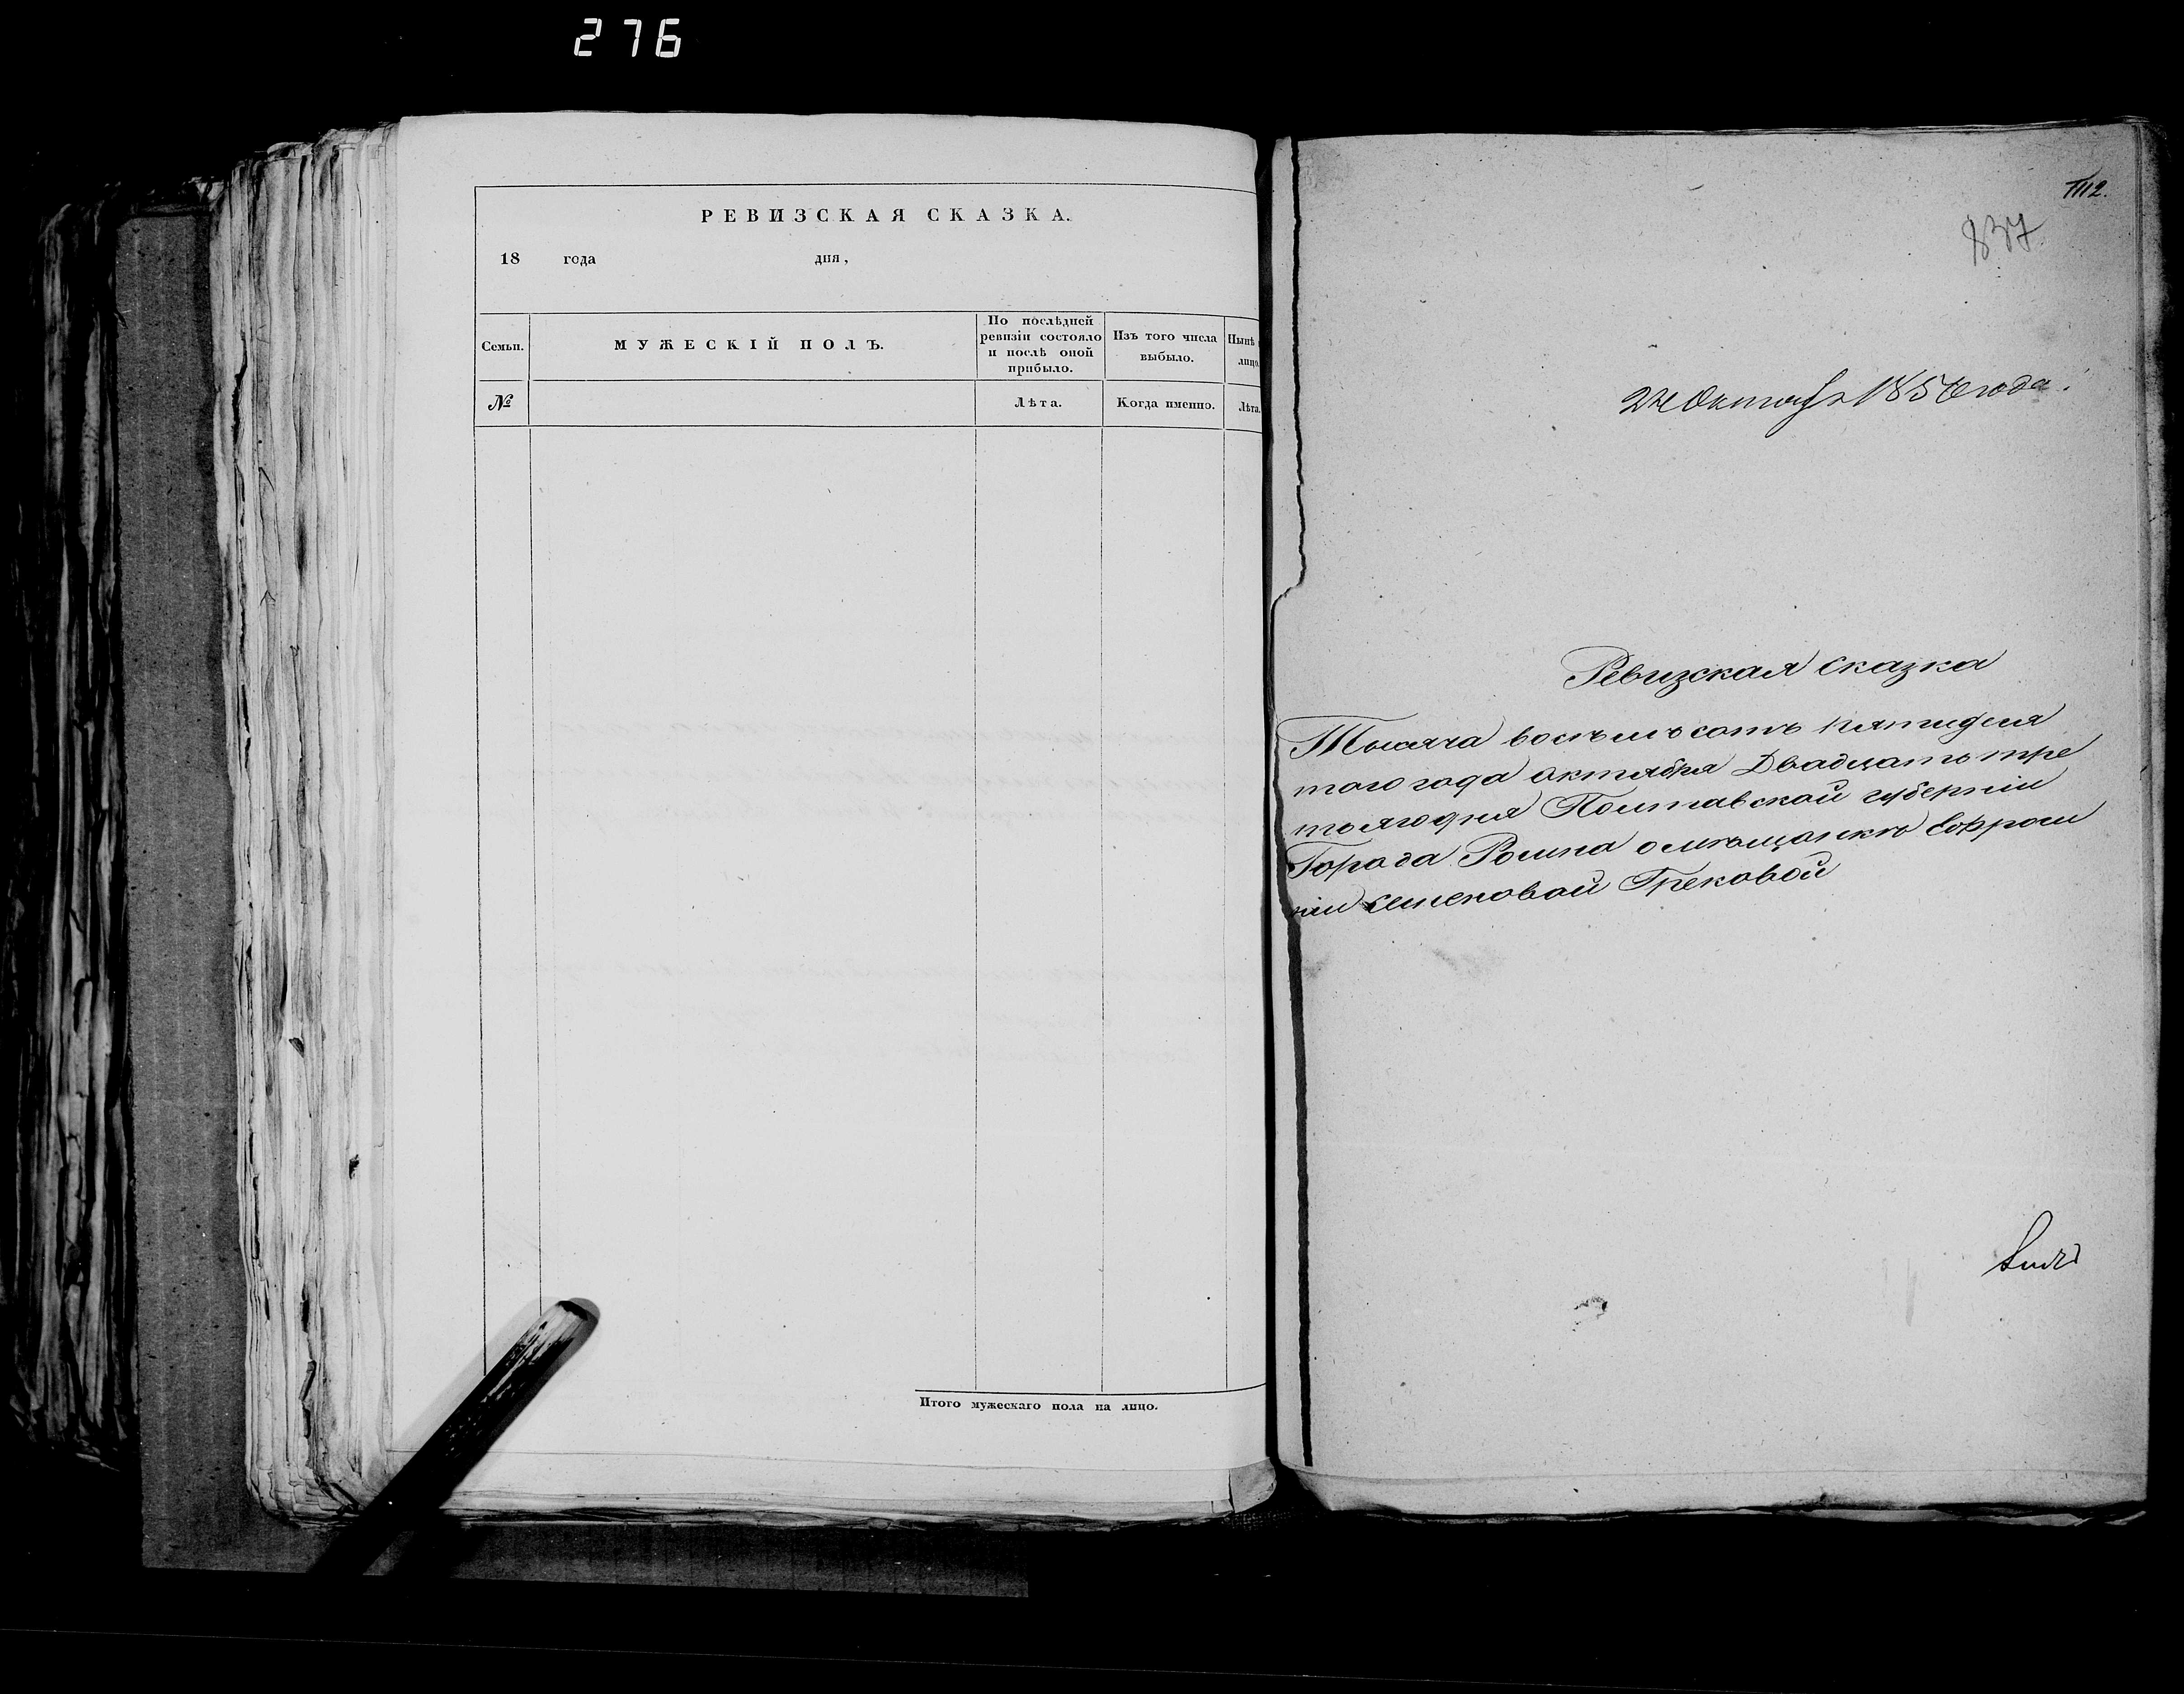 276
РЕВИЗСКАЯ СКАЗКА.
18 года дня,
Семьи.
МУЖЕСКІЙ ПОЛЪ.
По послѣдней
ревизіи состояло
и послѣ оной
прибыло.
Изъ того числа
выбыло.
Нынѣ
лицо
№
Лѣта.
Когда именно.
Лѣта.
Итого мужескаго пола на лицо.
1112.
837
Октября 185 года.
Ревизская сказка
Тысяча восемьсотъ пятидеся
таго года октября Двадцать тре
тьяго дня Полтавской губерніи
Города Ромна о мѣщанкѣ Евфроси
ніи Семеновой Грековой